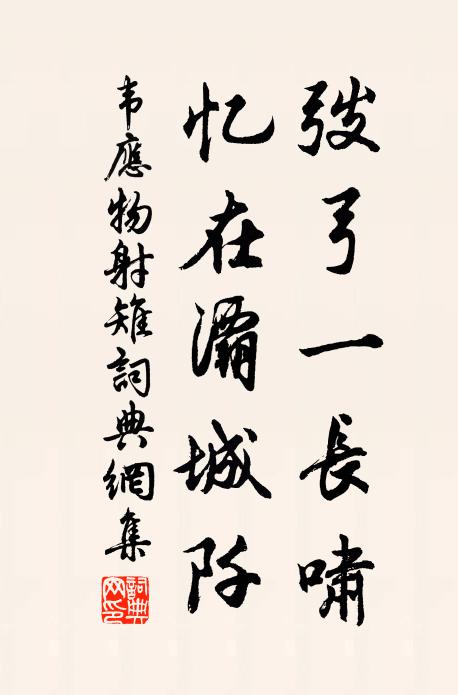 弢弓一長嘯
忆在灞城阡
韦應物射雉詞典網集
詞典網印